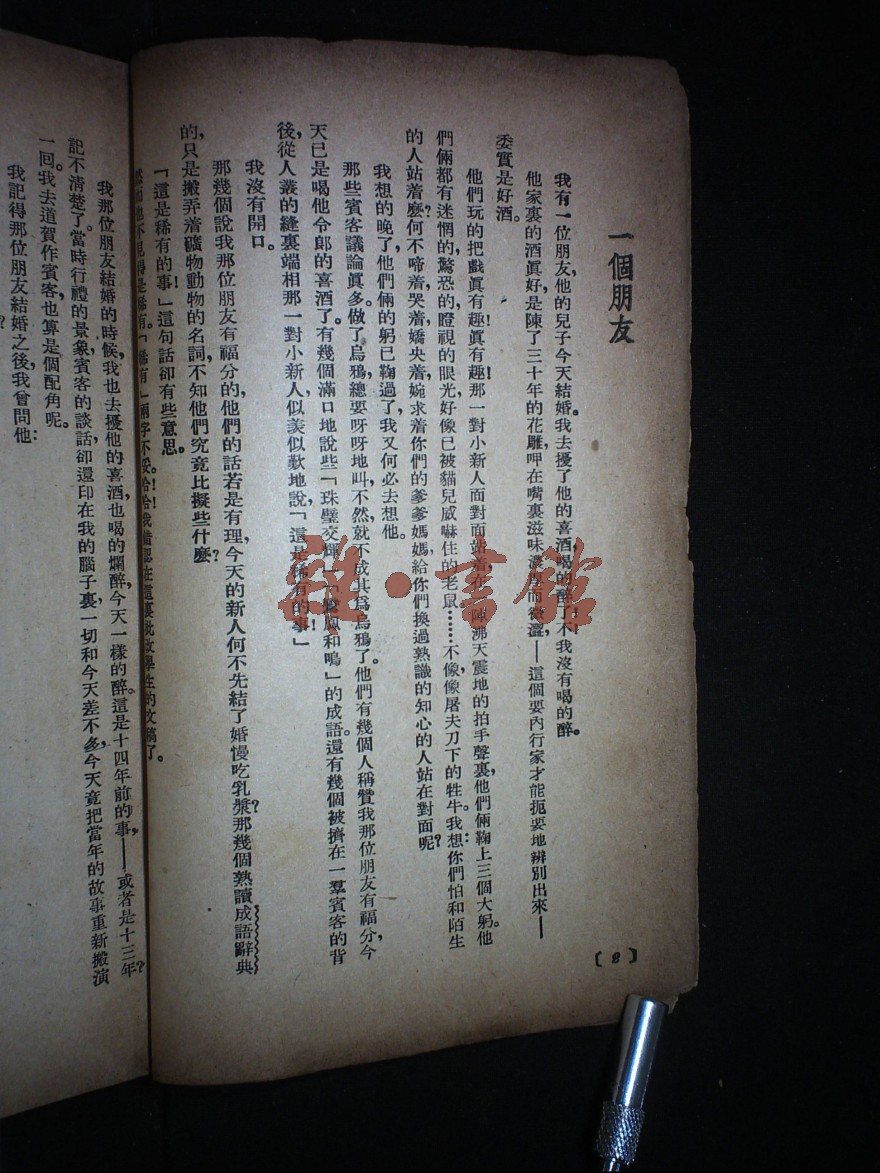 一個朋友
我有一位朋友，他的兒子今天結婚。我去擾了他的喜酒，喝的醉了！不，我沒有喝的醉。
他家裏的酒眞好，是陳了三十年的花雕，呷在嘴裏滋味濃厚而微澀，——這個要內行家才能扼要地辨別出來——
委實是好酒。
他們玩的把戲眞有趣！眞有趣！那一對小新人面對面站着，在一陣沸天震地的拍手聲裏，他們倆鞠上三個大躬。他
們倆都有迷惘的，驚恐的，瞪視的眼光，好像已被貓兒威嚇住的老鼠……不像，像屠夫刀下的牲牛。我想：你們怕和陌生
的人站着麼？何不啼着哭着，嬌央着，婉求着你們的爹爹媽媽，給你們換過熟識的知心的人站在對面呢？
我想的晚了，他們倆的躬已鞠過了，我又何必去想他。
那些賓客議論眞多。做了烏鴉，總要呀呀地叫，不然，就不成其爲烏鴉了。他們有幾個人稱贊我那位朋友有福分，今
天已是喝他令郎的喜酒了。有幾個滿口地說些「珠璧交輝」「鸞鳳和鳴」的成語。還有幾個被擠在一羣賓客的背
後，從人叢的縫裏端相那一對小新人，似羨似歎地說，「這是稀有的事！」
我沒有開口。
那幾個說我那位朋友有福分的，他們的話若是有理，今天的新人何不先結了婚慢吃乳漿？那幾個熟讀成語辭典
的，只是搬弄着礦物動物的名詞，不知他們究竟比擬些什麼？
「這是稀有的事！」這句話卻有些意思。
然而也不見得是稀有。「稀有」兩字不妥。哈！哈！我錯認在這裏批改學生的文稿了。
我那位朋友結婚的時候，我也去擾他的喜酒，也喝的爛醉，今天一樣的醉。這是十四年前的事，——或者是十三年？
記不清楚了。當時行禮的景象，賓客的談話，卻還印在我的腦子裏，一切和今天差不多，今天竟把當年的故事重新搬演
一回。我去道賀作賓客，也算是個配角呢。
我記得那位朋友結婚之後，我曾問他：
〔8〕
雅·書館